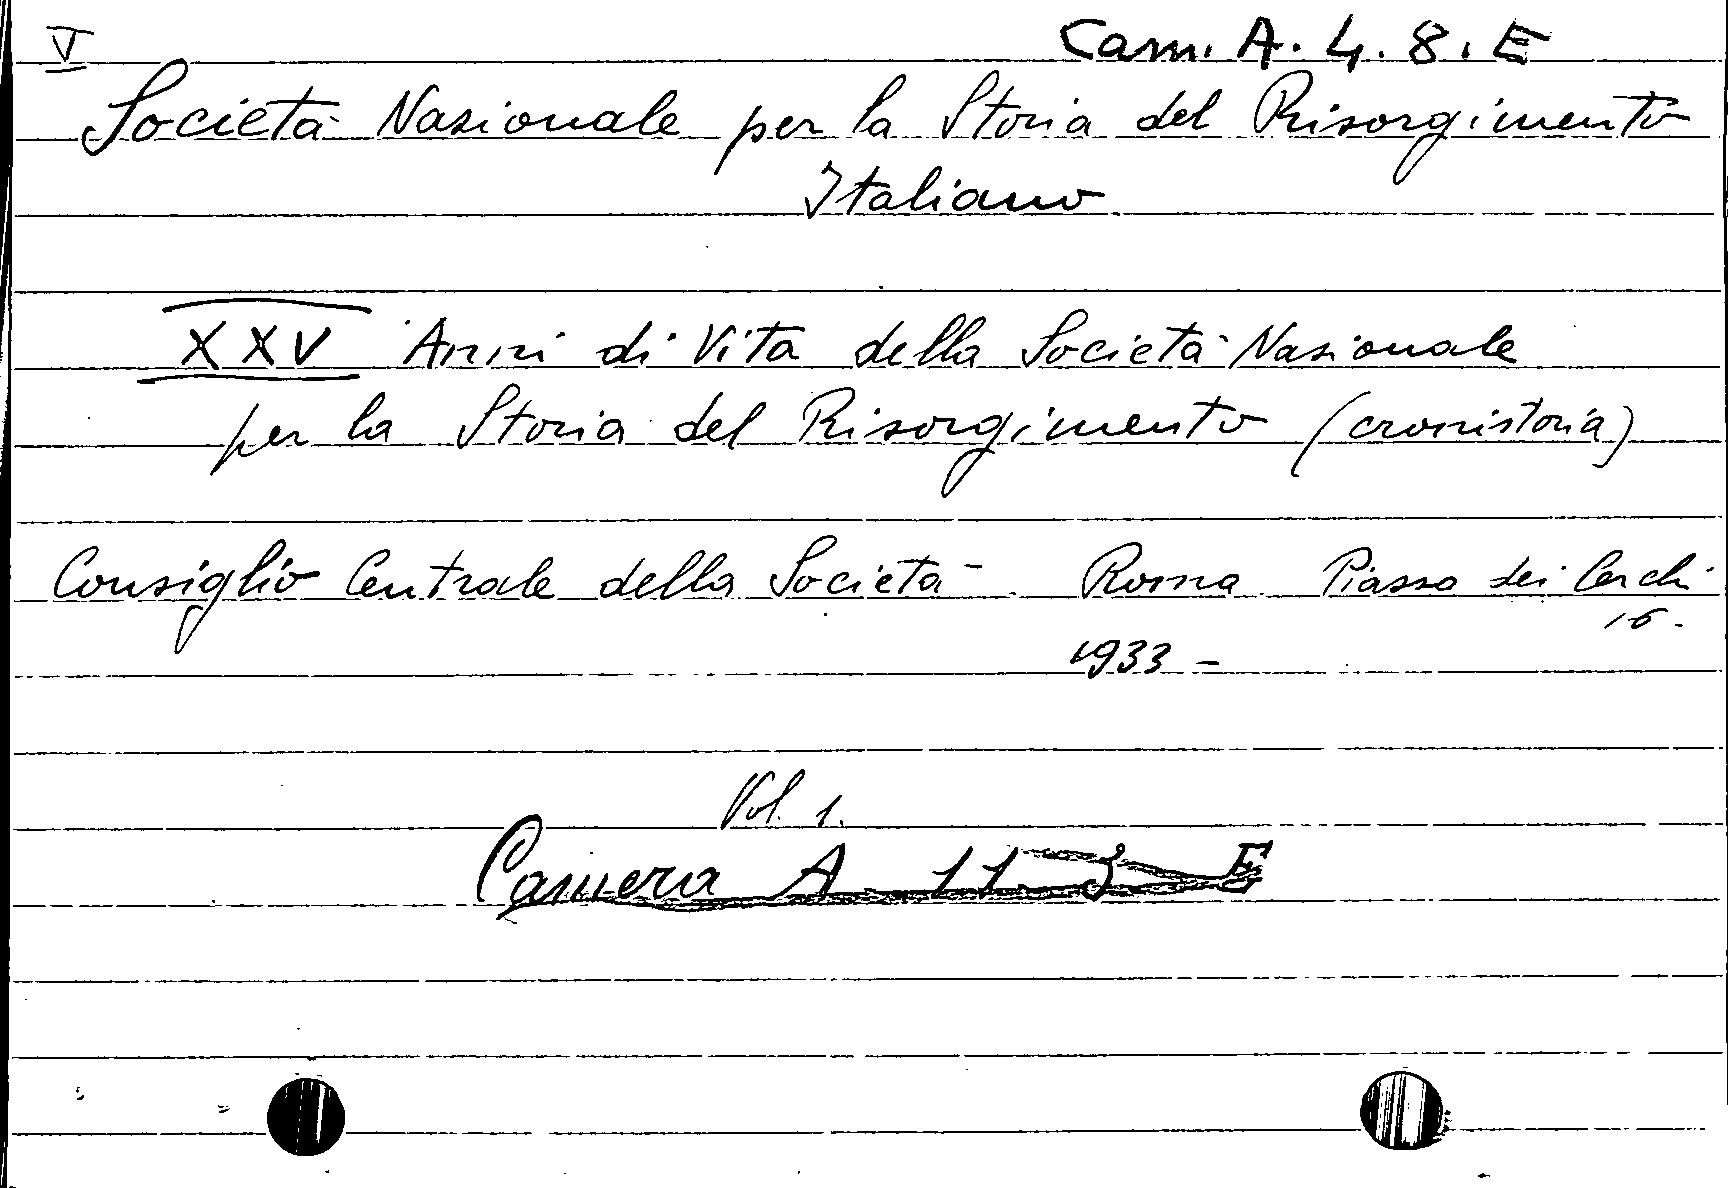 V
Cam. A. 4. 8. E
Società Nazionale per la Storia del Risorgimento
Italiano
XXV Anni di Vita della Società Nazionale
per la Storia del Risorgimento (cronistoria)
Consiglio Centrale della Società - Roma Piazza dei Cerchi
16.
1933 -
Vol. 1.
Camera A 11 3 E